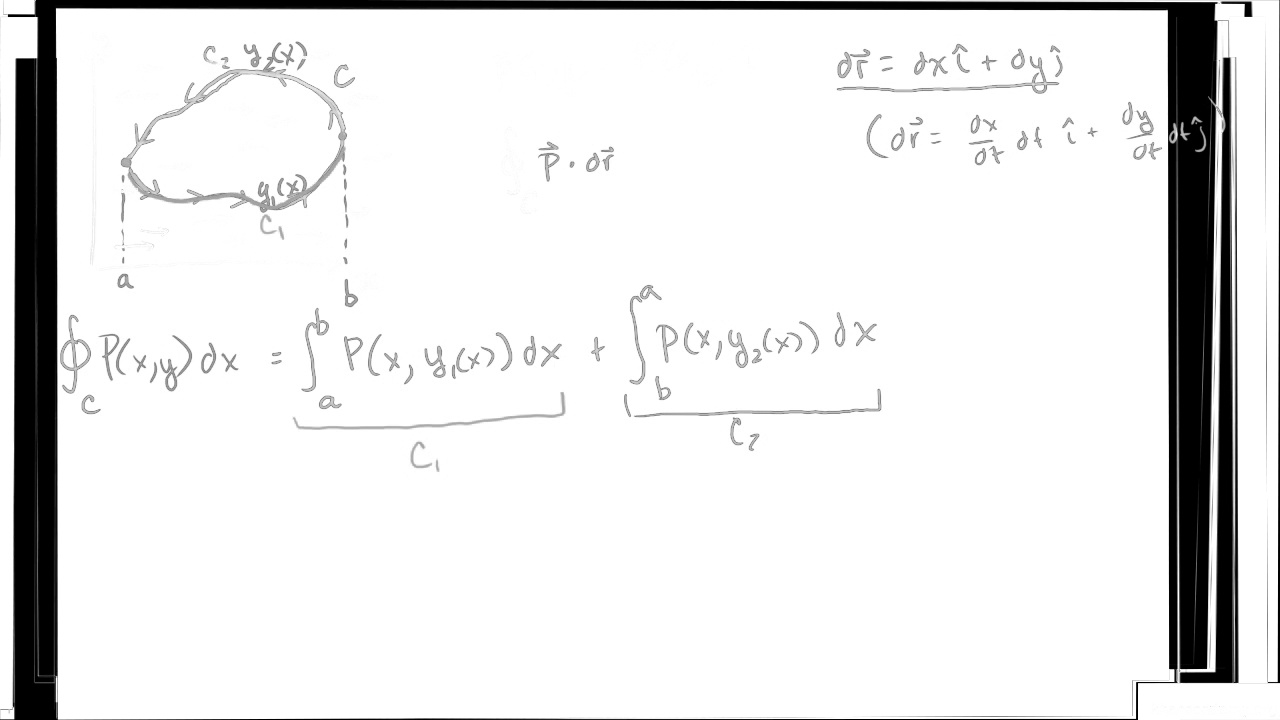 C₂ y₂(x)
C
y₁(x)
C₁
a
b
dr⃗ = dx î + dy ĵ
(dr⃗ = dx/dt dt î + dy/dt dt ĵ)
P⃗ · dr⃗
∮_C P(x,y) dx = ∫_a^b P(x, y₁(x)) dx + ∫_b^a P(x, y₂(x)) dx
C₁
C₂